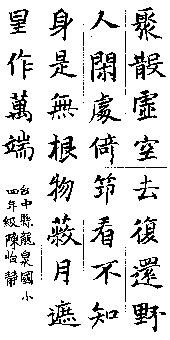 聚散虛空去復還野
人閒處倚筇看不知
身是無根物蔽月遮
星作萬端
台中縣龍泉國小
四年級陳怡蓉